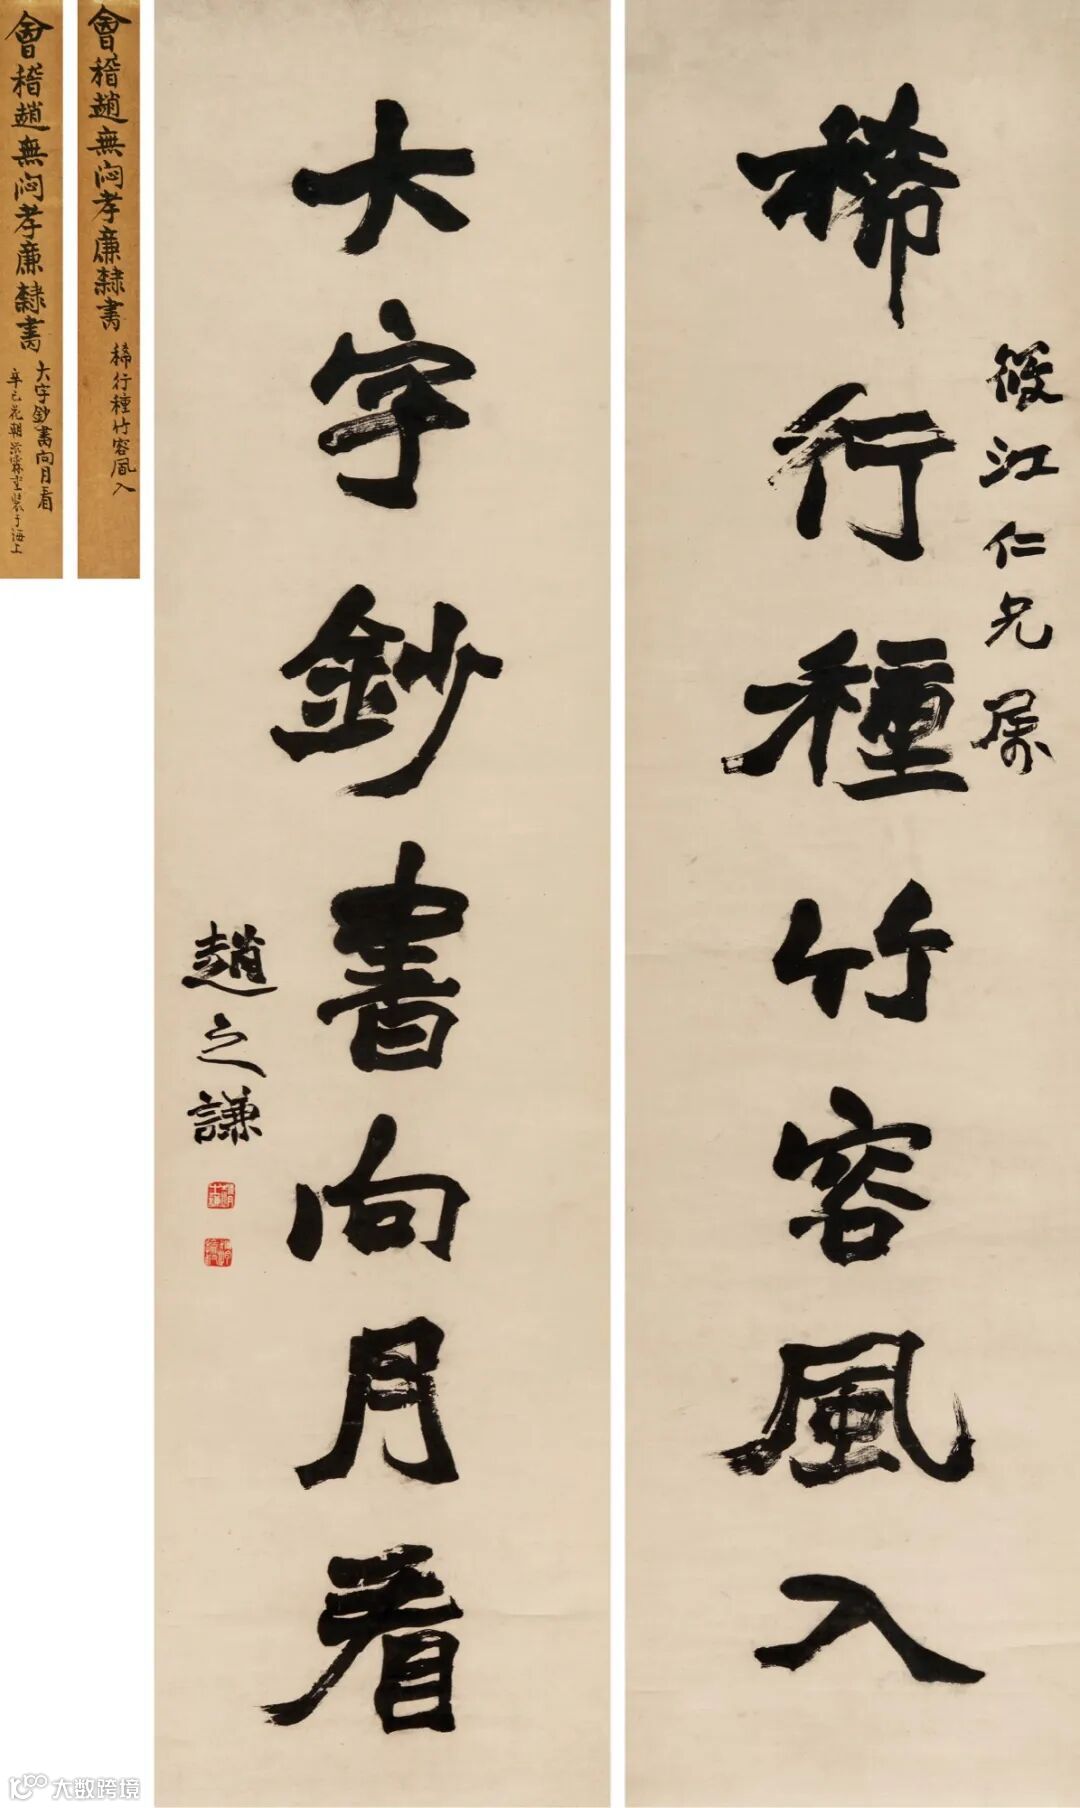 稀行種竹容風入
筱江仁兄属
大字鈔書向月看
趙之謙
會稽趙無悶孝廉隸書
稀行種竹容風入
會稽趙無悶孝廉隸書
大字鈔書向月看
辛巳花朝
堂裝于海上
大数跨境